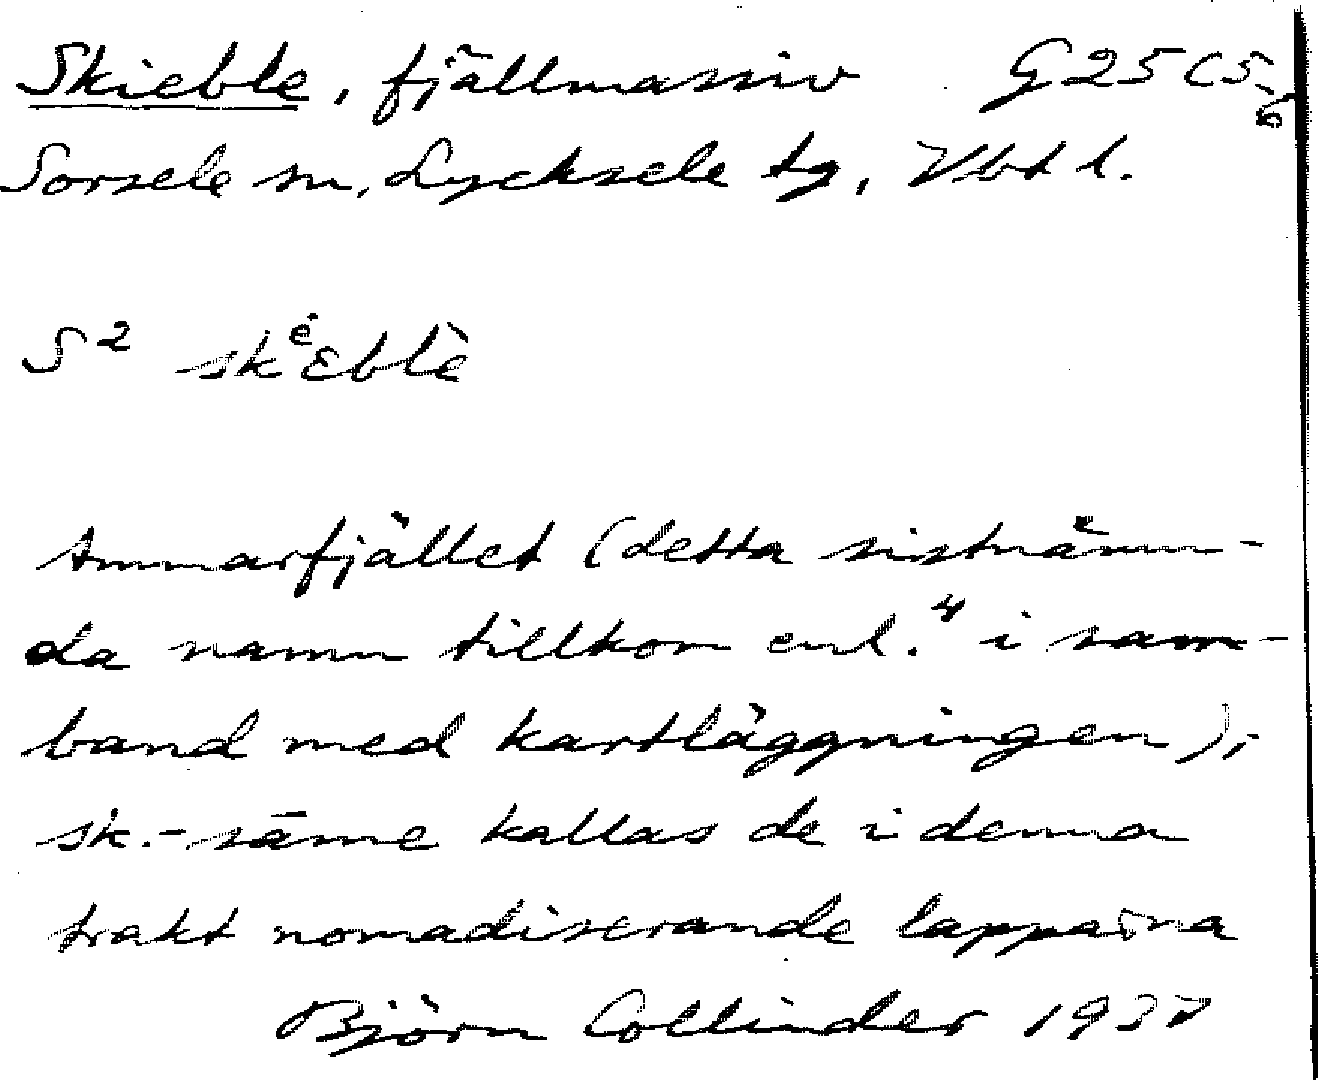 Skieble, fjällmassiv G 25 C 5-6
Sorsele sn, Lycksele tg, Vbt l.
S² skᵉ̇ɛblè
Ammarfjället (detta sistnämn-
da namn tillkom enl. ⁴ i sam-
band med kartläggningen);
sk.-sāme kallas de i denna
trakt nomadiserande lapparna
Björn Collinder 1937